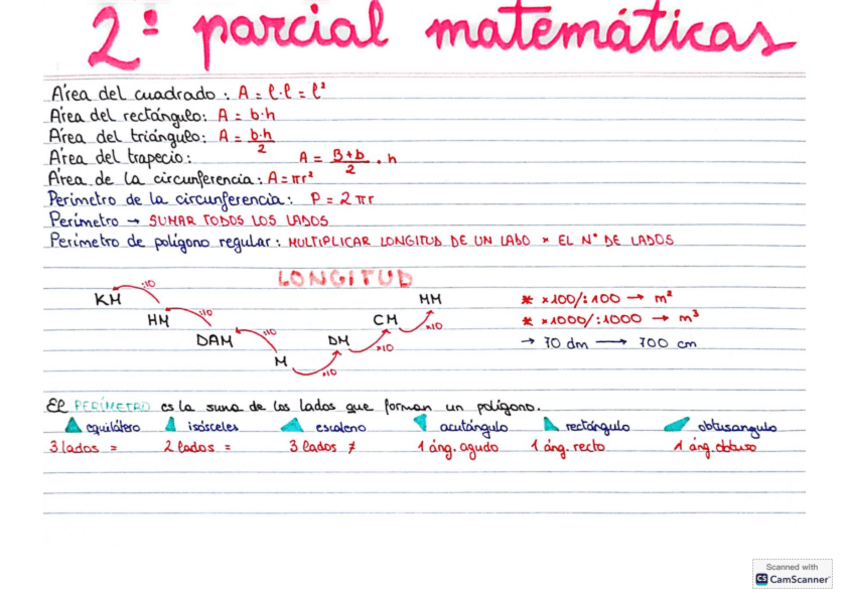 2º parcial matemáticas
Área del cuadrado: A = l·l = l²
Área del rectángulo: A = b·h
Área del triángulo: A = b·h/2
Área del trapecio: A = B+b/2 · h
Área de la circunferencia: A = πr²
Perímetro de la circunferencia: P = 2πr
Perímetro → SUMAR TODOS LOS LADOS
Perímetro de polígono regular: MULTIPLICAR LONGITUD DE UN LADO × EL Nº DE LADOS
LONGITUD
KM :10 HM :10 DAM :10 M ×10 DM ×10 CM ×10 MM
* ×100/:100 → m²
* ×1000/:1000 → m³
→ 70 dm → 700 cm
El PERÍMETRO es la suma de los lados que forman un polígono.
equilátero isósceles escaleno acutángulo rectángulo obtusangulo
3 lados = 2 lados = 3 lados ≠ 1 áng. agudo 1 áng. recto 1 áng. obtuso
Scanned with
CS CamScanner